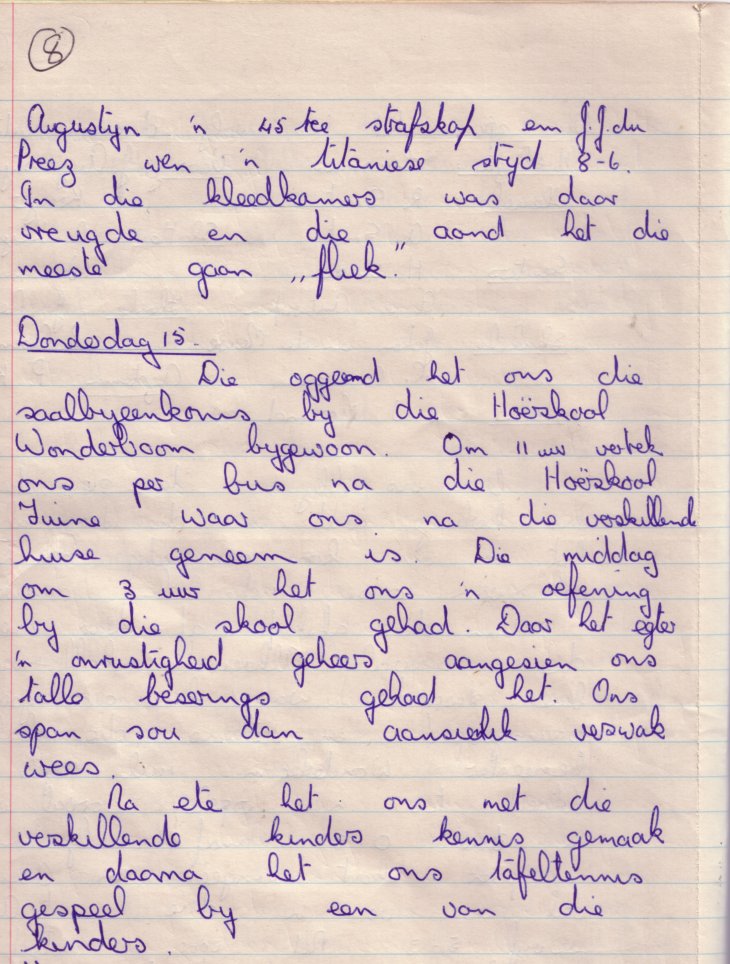 8
Augustyn 'n 45 tree strafskop en J.J. du
Preez wen 'n titaniese stryd 8-6.
In die kleedkamers was daar
vreugde en die aand het die
meeste gaan „fliek."
Donderdag 15.
Die oggend het ons die
saalbyeenkoms by die Hoërskool
Wonderboom bygewoon. Om 11 uur vertrek
ons per bus na die Hoërskool
waar ons na die verskillende
huise geneem is. Die middag
om 3 uur het ons 'n oefening
by die skool gehad. Daar het egter
'n onrustigheid geheers aangesien ons
talle beserings gehad het. Ons
span sou dan aansienlik verswak
wees.
Na ete het ons met die
verskillende kinders kennis gemaak
en daarna het ons tafeltennis
gespeel by een van die
kinders.